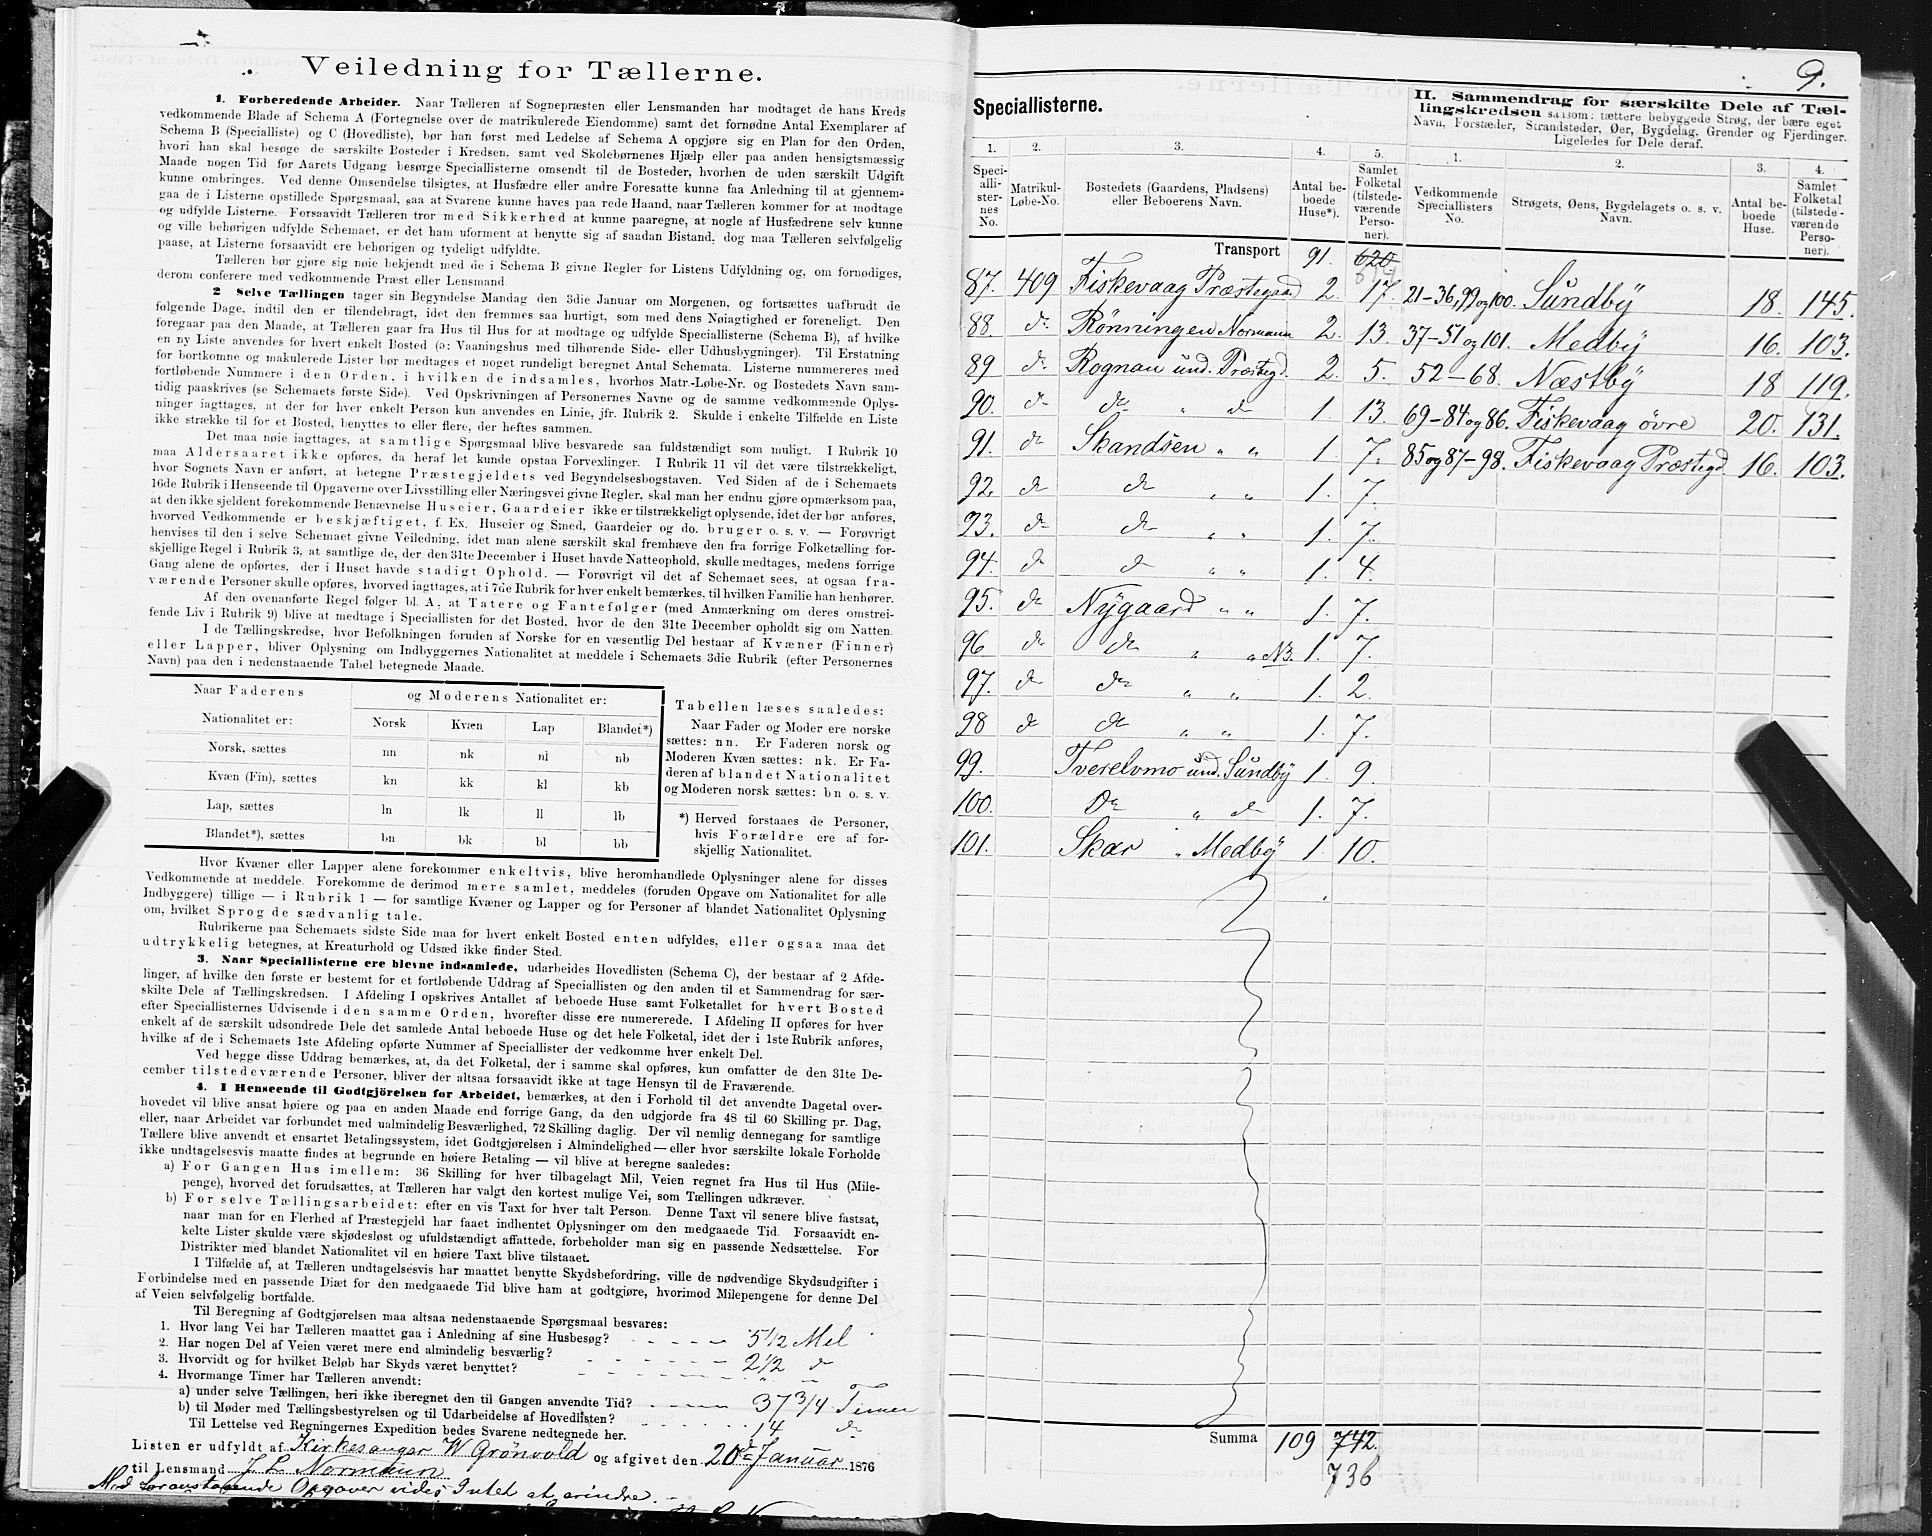 Veiledning for Tællerne.
1. Forberedende Arbeider. Naar Tælleren af Sognepræsten eller Lensmanden har modtaget de hans Kreds
vedkommende Blade af Schema A (Fortegnelse over de matrikulerede Eiendomme) samt det fornødne Antal Exemplarer af
Schema B (Specialliste) og C (Hovedliste), bør han først med Ledelse af Schema A opgjøre sig en Plan for den Orden,
hvori han skal besøge de særskilte Bosteder i Kredsen, samt ved Skolebørnenes Hjælp eller paa anden hensigtsmæssig
Maade nogen Tid før Aarets Udgang besørge Speciallisterne omsendt til de Bosteder, hvorhen de uden særskilt Udgift
kunne ombringes. Ved denne Omsendelse tilsigtes, at Husfædre eller andre Foresatte kunne faa Anledning til at gjennem-
gaa de i Listerne opstillede Spørgsmaal, saa at Svarene kunne haves paa rede Haand, naar Tælleren kommer for at modtage
og udfylde Listerne. Forsaavidt Tælleren tror med Sikkerhed at kunne paaregne, at nogle af Husfædrene selv kunne
og ville behørigen udfylde Schemaet, er det ham uforment at benytte sig af saadan Bistand, dog maa Tælleren selvfølgelig
paase, at Listerne forsaavidt ere behørigen og tydeligt udfyldte.
Tælleren bør gjøre sig nøie bekjendt med de i Schema B givne Regler for Listens Udfyldning og, om fornødiges,
derom conferere med vedkommende Præst eller Lensmand.
2 Selve Tællingen tager sin Begyndelse Mandag den 3die Januar om Morgenen, og fortsættes uafbrudt de
følgende Dage, indtil den er tilendebragt, idet den fremmes saa hurtigt, som med dens Nøiagtighed er foreneligt. Den
foregaar paa den Maade, at Tælleren gaar fra Hus til Hus for at modtage og udfylde Speciallisterne (Schema B), af hvilke
en ny Liste anvendes for hvert enkelt Bosted (ɔ: Vaaningshus med tilhørende Side- eller Udhusbygninger). Til Erstatning
for bortkomne og makulerede Lister bør medtages et noget rundeligt beregnet Antal Schemata. Listerne nummereres med
fortløbende Nummere i den Orden, i hvilken de indsamles, hvorhos Matr-Løbe-Nr. og Bostedets Navn sam-
tidig paaskrives (se Schemaets første Side). Ved Opskrivningen af Personernes Navne og de samme vedkommende Oplys-
ninger iagttages, at der for hver enkelt Person kun anvendes en Linie, jfr. Rubrik 2. Skulde i enkelte Tilfælde en Liste
ikke strække til for et Bosted, benyttes to eller flere, der heftes sammen.
Det maa nøie iagttages, at samtlige Spørgsmaal blive besvarede saa fuldstændigt som muligt. I Rubrik 10
maa Aldersaaret ikke opføres, da heraf let kunde opstaa Forvexlinger. I Rubrik 11 vil det være tilstrækkeligt,
hvor Sognets Navn er anført, at betegne Præstegjeldets ved Begyndelsesbogstaven. Ved Siden af de i Schemaets
16de Rubrik i Henseende til Opgaverne over Livsstilling eller Næringsvei givne Regler, skal man her endnu gjøre opmærksom paa,
at den ikke sjeldent forekommende Benævnelse Huseier, Gaardeier ikke er tilstrækkeligt oplysende, idet der bør anføres,
hvorved Vedkommende er beskjæftiget, f. Ex. Huseier og Smed, Gaardeier og do. bruger o. s. v. — Forøvrigt
henvises til den i selve Schemaet givne Veiledning, idet man alene særskilt skal fremhæve den fra forrige Folketælling for-
skjellige Regel i Rubrik 3, at samtlige de, der den 31te December i Huset havde Natteophold, skulle medtages, medens forrige
Gang alene de opførtes, der i Huset havde stadigt Ophold. — Forøvrigt vil det af Schemaet sees, at ogsaa fra-
værende Personer skulle opføres, hvorved iagttages, at i 7de Rubrik for hver enkelt bemærkes, til hvilken Familie han henhører.
Af den ovenanførte Regel følger bl. A., at Tatere og Fantefølger (med Anmærkning om deres omstrei-
fende Liv i Rubrik 9) blive at medtage i Speciallisten for det Bosted, hvor de den 31te December opholdt sig om Natten.
I de Tællingskredse, hvor Befolkningen foruden af Norske for en væsentlig Del bestaar af Kvæner (Finner)
eller Lapper, bliver Oplysning om Indbyggernes Nationalitet at meddele i Schemaets 3die Rubrik (efter Personernes
Navn) paa den i nedenstaaende Tabel betegnede Maade.
Naar Faderens og Moderens Nationalitet er:
Nationalitet er: Norsk Kvæn Lap Blandet*)
Norsk, sættes nn nk nl nb
Kvæn (Fin), sættes kn kk kl kb
Lap, sættes ln lk ll lb
Blandet*), sættes bn bk bl bb
Tabellen læses saaledes:
Naar Fader og Moder ere norske
sættes: nn. Er Faderen norsk og
Moderen Kvæn sættes: nk. Er Fa-
deren af blandet Nationalitet
og Moderen norsk sættes: bn o. s. v.
*) Herved forstaaes de Personer,
hvis Forældre ere af for-
skjellig Nationalitet.
Hvor Kvæner eller Lapper alene forekommer enkeltvis, blive heromhandlede Oplysninger alene for disses
Vedkommende at meddele. Forekomme de derimod mere samlet, meddeles (foruden Opgave om Nationalitet for alle
Indbyggere) tillige — i Rubrik 1 — for samtlige Kvæner og Lapper og for Personer af blandet Nationalitet Oplysning
om, hvilket Sprog de sædvanlig tale.
Rubrikerne paa Schemaets sidste Side maa for hvert enkelt Bosted enten udfyldes, eller ogsaa maa det
udtrykkelig betegnes, at Kreaturhold og Udsæd ikke finder Sted.
3. Naar Speciallisterne ere blevne indsamlede, udarbeides Hovedlisten (Schema C), der bestaar af 2 Afde-
linger, af hvilke den første er bestemt for et fortløbende Uddrag af Speciallisten og den anden til et Sammendrag for sær-
skilte Dele af Tællingskredsen. I Afdeling I opskrives Antallet af beboede Huse samt Folketallet for hvert Bosted
efter Speciallisternes Udvisende i den samme Orden, hvorefter disse ere numererede. I Afdeling II opføres for hver
enkelt af de særskilt udsondrede Dele det samlede Antal beboede Huse og det hele Folketal, idet der i 1ste Rubrik anføres,
hvilke af de i Schemaets 1ste Afdeling opførte Nummer af Speciallister der vedkomme hver enkelt Del.
Ved begge disse Uddrag bemærkes, at, da det Folketal, der i samme skal opføres, kun omfatter de den 31te De-
cember tilstedeværende Personer, bliver der altsaa forsaavidt ikke at tage Hensyn til de Fraværende.
4. I Henseende til Godtgjörelsen for Arbeidet, bemærkes, at den i Forhold til det anvendte Dagetal over-
hovedet vil blive ansat høiere og paa en anden Maade end forrige Gang, da den udgjorde fra 48 til 60 Skilling pr. Dag,
eller, naar Arbeidet var forbundet med ualmindelig Besværlighed, 72 Skilling daglig. Der vil nemlig dennegang for samtlige
Tællere blive anvendt et ensartet Betalingssystem, idet Godtgjørelsen i Almindelighed — eller hvor særskilte lokale Forholde
ikke undtagelsesvis maatte findes at begrunde en høiere Betaling — vil blive at beregne saaledes:
a) For Gangen Hus imellem: 36 Skilling for hver tilbagelagt Mil, Veien regnet fra Hus til Hus (Mile-
penge), hvorved det forudsættes, at Tælleren har valgt den kortest mulige Vei, som Tællingen udkræver.
b) For selve Tællingsarbeidet: efter en vis Taxt for hver talt Person. Denne Taxt vil senere blive fastsat,
naar man for en Flerhed af Præstegjeld har faaet indhentet Oplysninger om den medgaaede Tid. Forsaavidt en-
kelte Lister skulde være skjødesløst og ufuldstændigt affattede, forbeholder man sig en passende Nedsættelse. For
Distrikter med blandet Nationalitet vil en høiere Taxt blive tilstaaet.
I Tilfælde af, at Tælleren undtagelsesvis har maattet benytte Skydsbefordring, ville de nødvendige Skydsudgifter i
Forbindelse med en passende Diæt for den medgaaede Tid blive ham at godtgjøre, hvorimod Milepengene for denne Del
af Veien selvfølgelig bortfalde.
Til Beregning af Godtgjørelsen maa altsaa nedenstaaende Spørgsmaal besvares:
1. Hvor lang Vei har Tælleren maattet gaa i Anledning af sine Husbesøg? 5 1/2 Mil
2. Har nogen Del af Veien været mere end almindelig besværlig? 2 1/2 d
3. Hvorvidt og for hvilket Beløb har Skyds været benyttet? " "
4. Hvormange Timer har Tælleren anvendt:
a) under selve Tællingen, heri ikke iberegnet den til Gangen anvendte Tid? 37 3/4 Timer
b) til Møder med Tællingsbestyrelsen og til Udarbeidelse af Hovedlisten? 14 d
Til Lettelse ved Regningernes Expedition bedes Svarene nedtegnede her.
Listen er udfyldt af Kirkesanger W Grönvold og afgivet den 20de Januar 1876
til Lensmand J L Normann
Med foranstaaende Opgaver vides Intet at erindre.
9.
Speciallisterne.
II. Sammendrag for særskilte Dele af Tæl-
lingskredsen saasom: tættere bebyggede Strøg, der bære eget
Navn, Forstæder, Strandsteder, Øer, Bygdelag, Grender og Fjerdinger.
Ligeledes for Dele deraf.
1. 2. 3. 4. 5. 1. 2. 3. 4.
Speci-
alli-
ster-
nes
No.
Matrikul-
Løbe-No.
Bostedets (Gaardens, Pladsens)
eller Beboerens Navn.
Antal be-
boede
Huse*).
Samlet
Folketal
(tilstede-
værende
Perso-
ner).
Vedkommende
Speciallisters
No.
Strøgets, Øens, Bygdelagets o. s. v.
Navn.
Antal be-
boede
Huse.
Samlet
Folketal
(tilstede-
værende
Perso-
ner).
Transport 91. 620
87. 409 Fiskevaag Præstegaard 2. 17. 21-36, 99 og 100. Sundby 18. 145.
88. do Rönningen Normann 2. 13. 37-51 og 101. Medby 16. 103.
89 do Rognan und. Præstegd. 2. 5. 52-68. Næstby 18 119.
90. do do " do 1. 13. 69-84 og 86. Fiskevaag övre 20. 131.
91. do Skandsen " " 1. 7. 85 og 87-98. Fiskevaag Præstegd 16. 103.
92. do do " " 1. 7.
93. do do " " 1. 7.
94. do do " " 1. 4.
95. do Nygaard " " 1. 7.
96 do do " " N3. 1. 7.
97. do do " " 1. 2.
98 do do " " 1. 7.
99. Tverelvmo und. Sundby 1. 9.
100. Do " do 1. 7.
101. Skar " Medby 1. 10.
Summa 109 742.
736